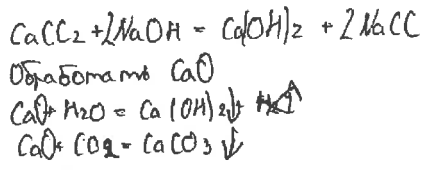 CaCl2 + 2NaOH = Ca(OH)2 + 2NaCl
Обработать CaO
CaO + H2O = Ca(OH)2↓
CaO + CO2 = CaCO3↓